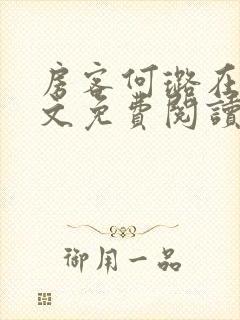 房客何璐在
文免費閱讀
御用一品